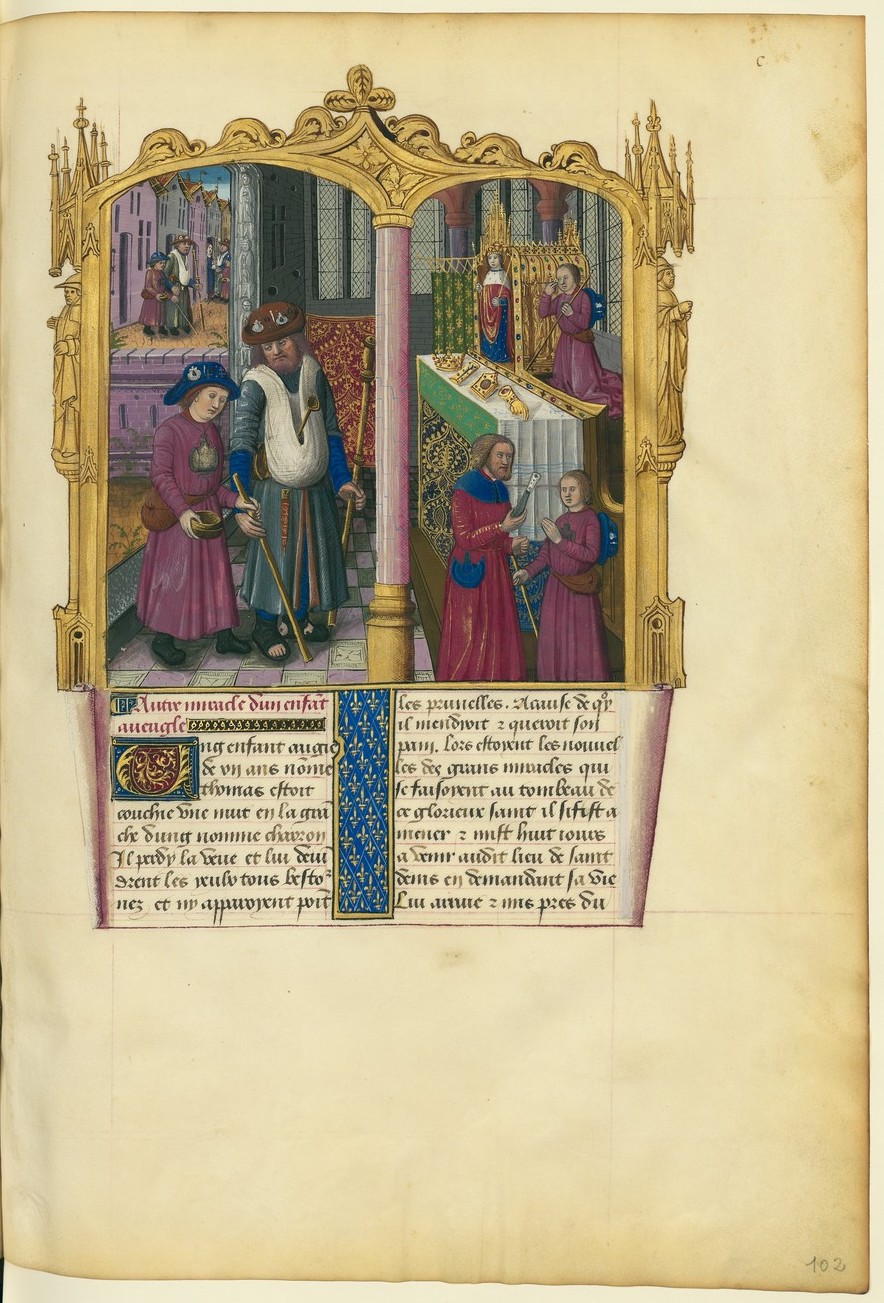 c
Autre miracle dun enfãt
aveugle
Ung enfant augie
de vii ans nõme
thomas estoit
couchie vne nuit en la grã
che dung nomme charron
Il perdy la veue et lui devi
drent les yeulx tous besto
nez et ny apparoyent poĩt
les prunelles. A cause de qoy
il mendioit ⁊ queroit son
pain. Lors estoyent les nouuel
les des grans miracles qui
se faisoyent au tombeau de
ce glorieux saint il sifist a
mener ⁊ mist huit iours
a venir audit lieu de saint
denis en demandant sa vie
Lui arriue ⁊ mis pres du
102